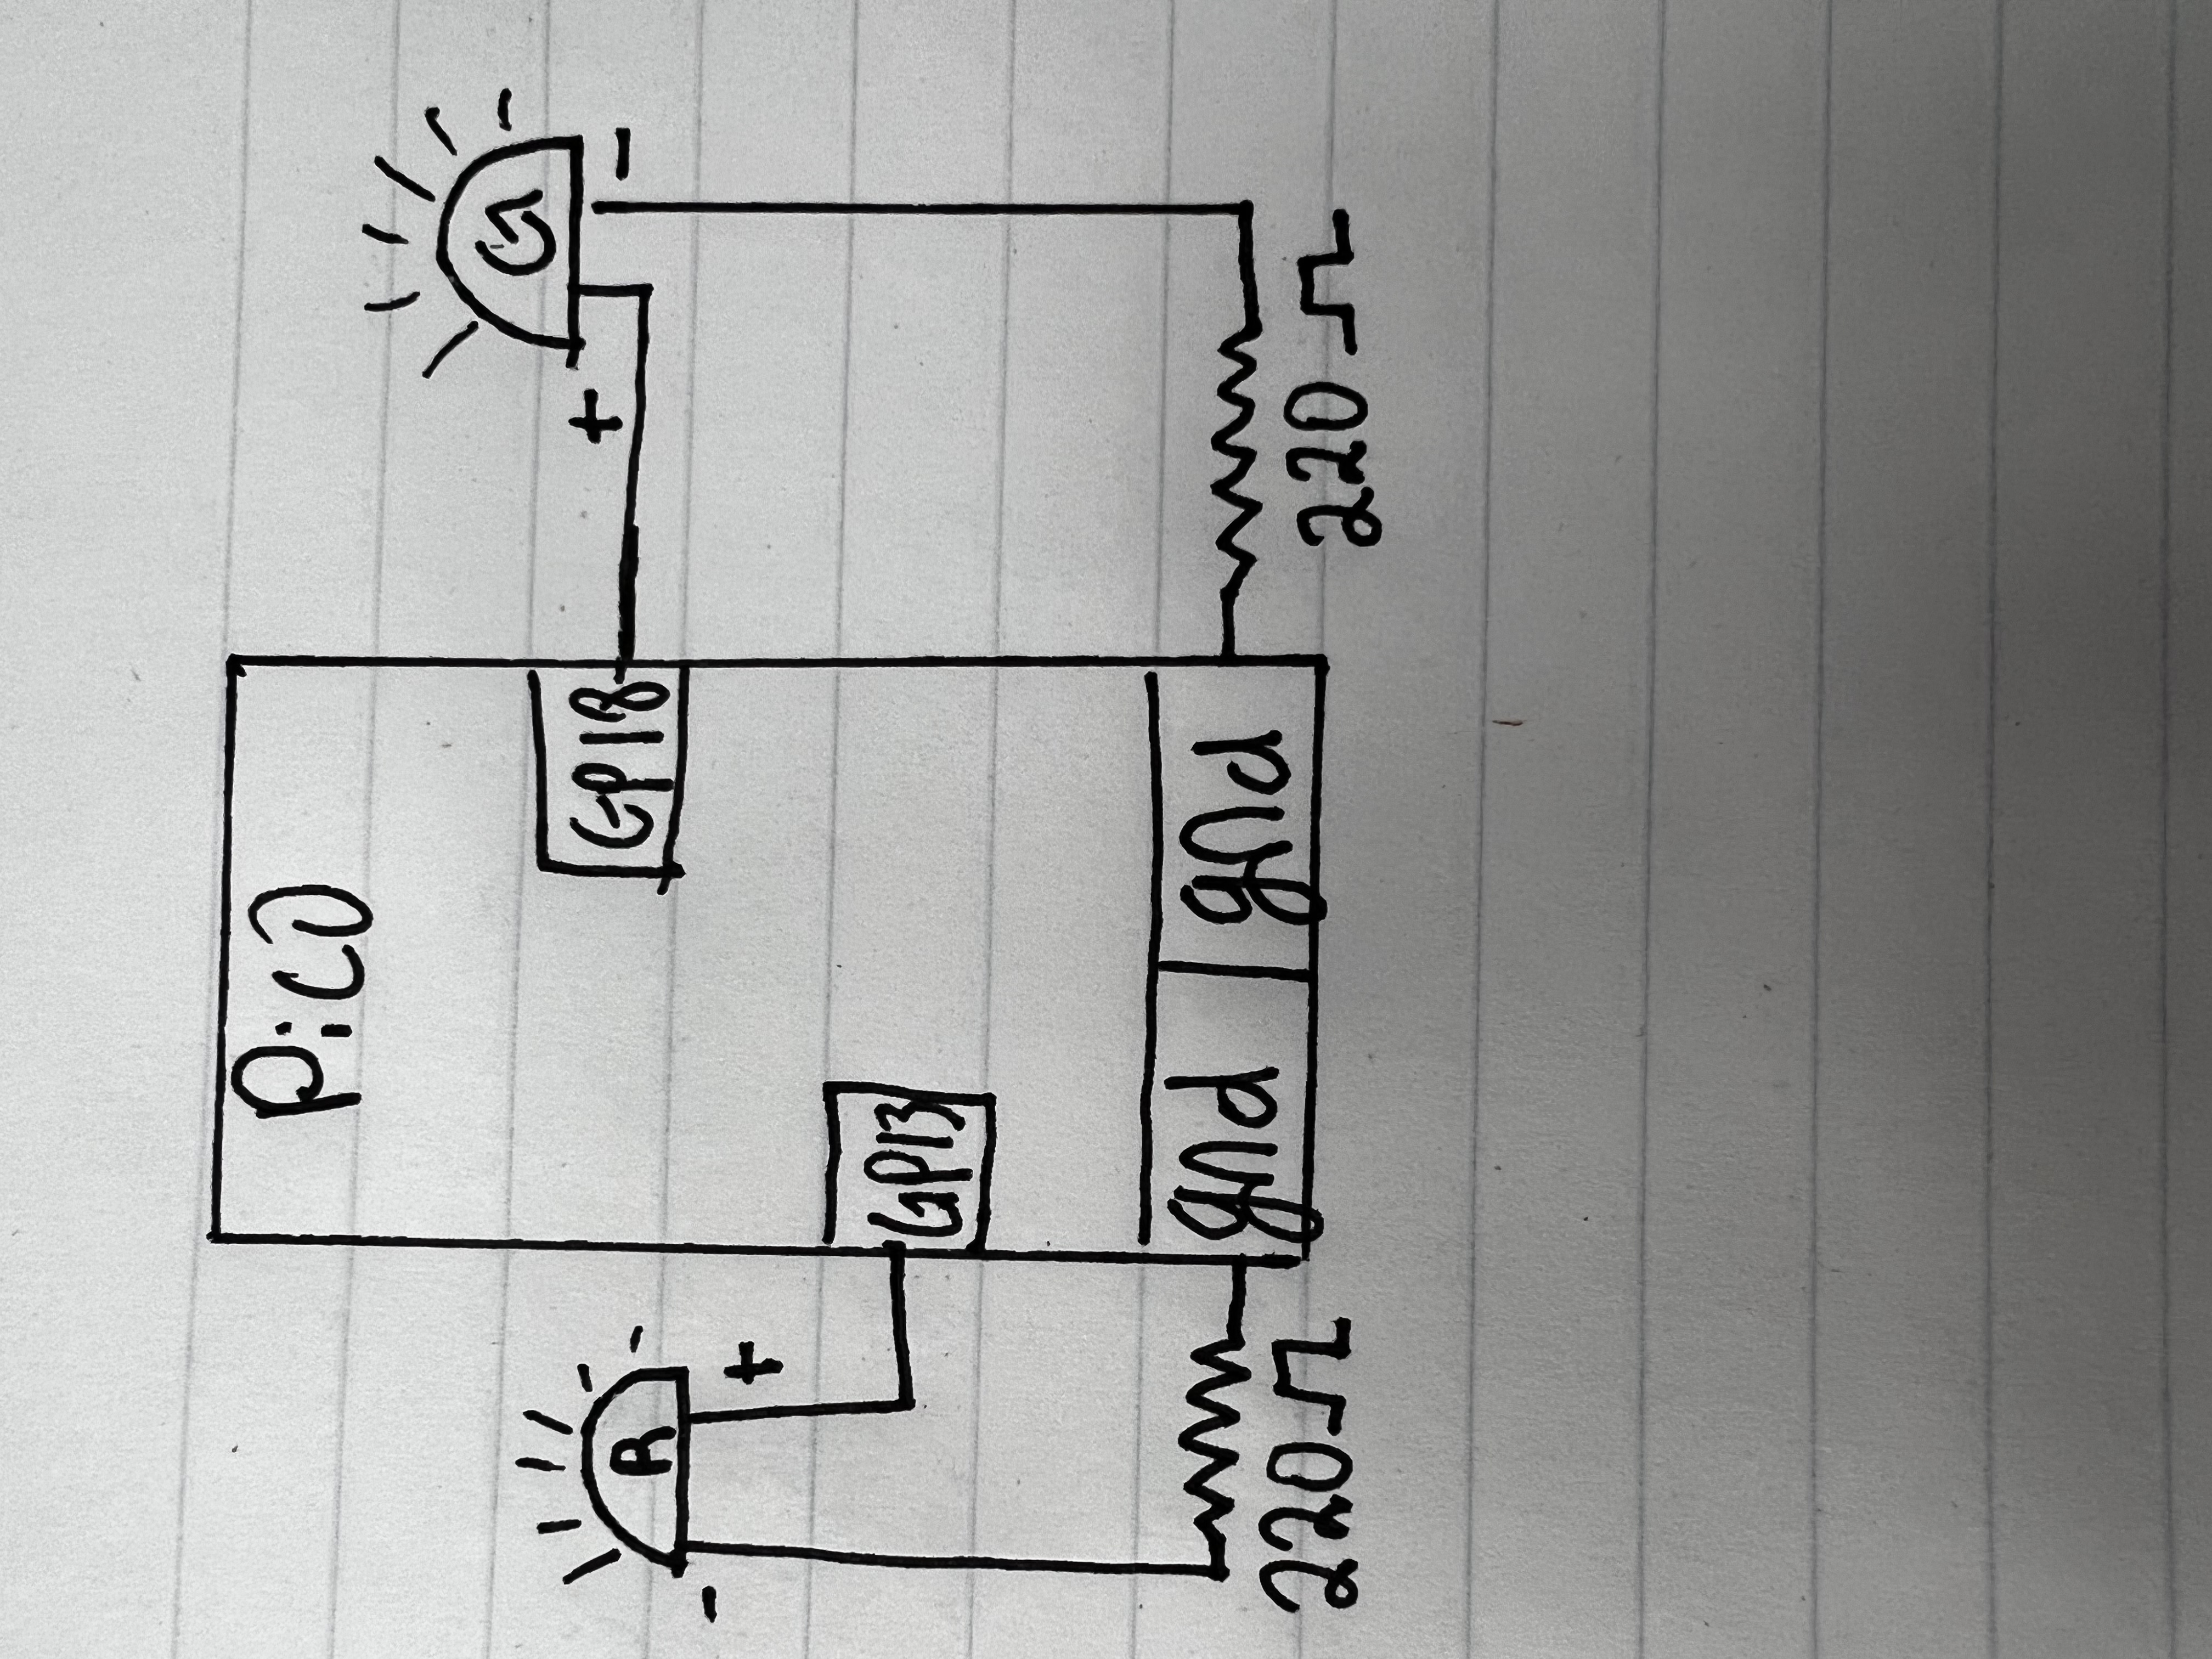 Pico
G
+
GP18
-
R
-
+
GP13
gnd gnd
220Ω
220Ω